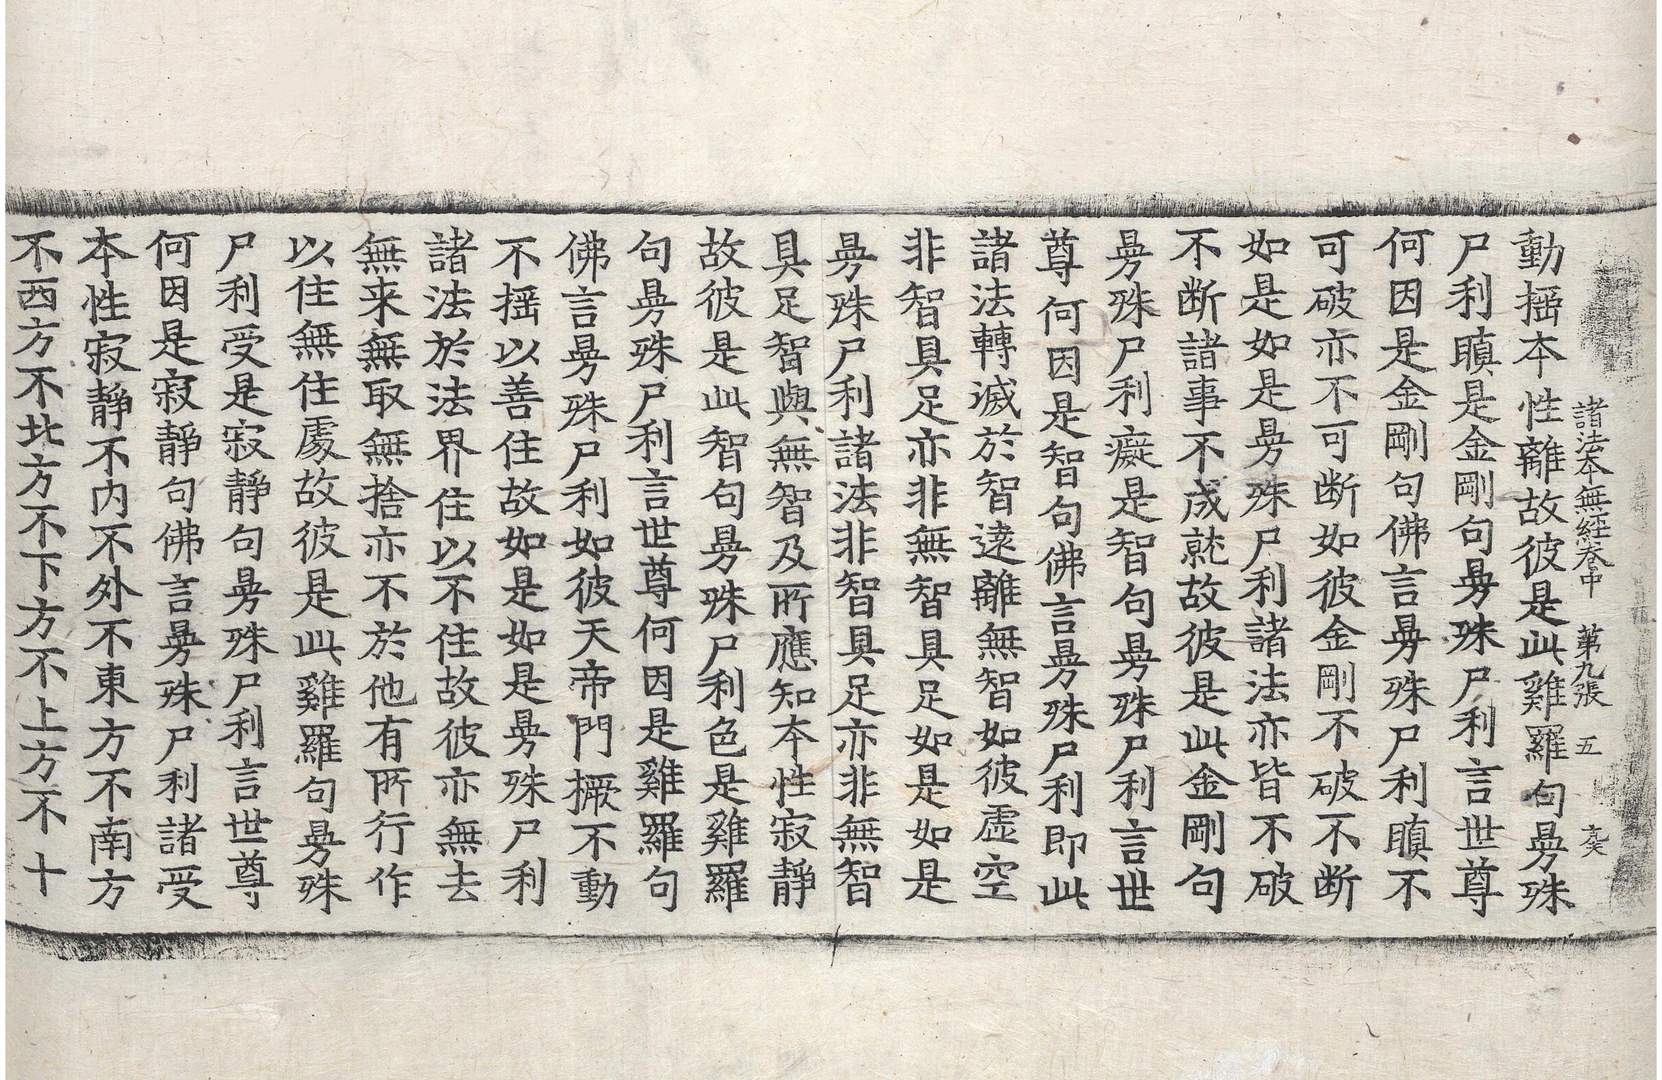 諸法本無經卷中 第九張 五 䒭
動揺本性離故彼是此雞羅句㬅殊
尸利瞋是金剛句㬅殊尸利言世尊
何因是金剛句佛言㬅殊尸利瞋不
可破亦不可断如彼金剛不破不断
如是如是㬅殊尸利諸法亦皆不破
不断諸事不成就故彼是此金剛句
㬅殊尸利癡是智句㬅殊尸利言世
尊何因是智句佛言㬅殊尸利即此
諸法轉滅於智遠離無智如彼虛空
非智具足亦非無智具足如是如是
㬅殊尸利諸法非智具足亦非無智
具足智與無智及所應知本性寂靜
故彼是此智句㬅殊尸利色是雞羅
句㬅殊尸利言世尊何因是雞羅句
佛言㬅殊尸利如彼天帝門橛不動
不揺以善住故如是如是㬅殊尸利
諸法於法界住以不住故彼亦無去
無来無取無捨亦不於他有所行作
以住無住處故彼是此雞羅句㬅殊
尸利受是寂靜句㬅殊尸利言世尊
何因是寂靜句佛言㬅殊尸利諸受
本性寂靜不内不外不東方不南方
不西方不北方不下方不上方不十